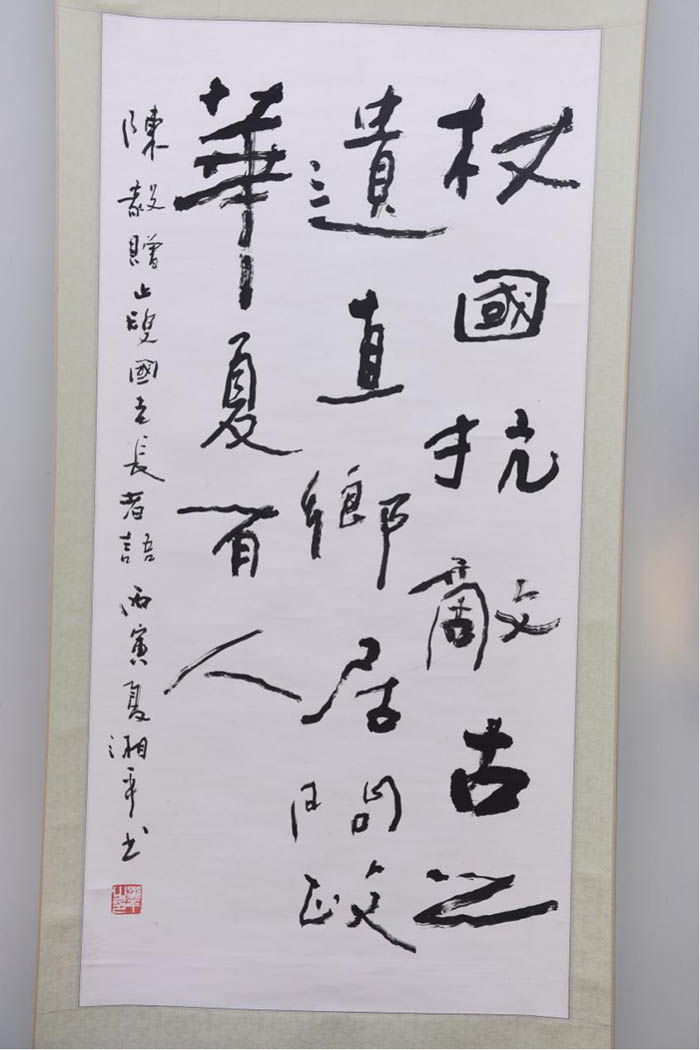 杖國抗敵古之
遺直鄉居問政
華夏有人
陳毅贈止叟國長者語 丙寅夏湘平書